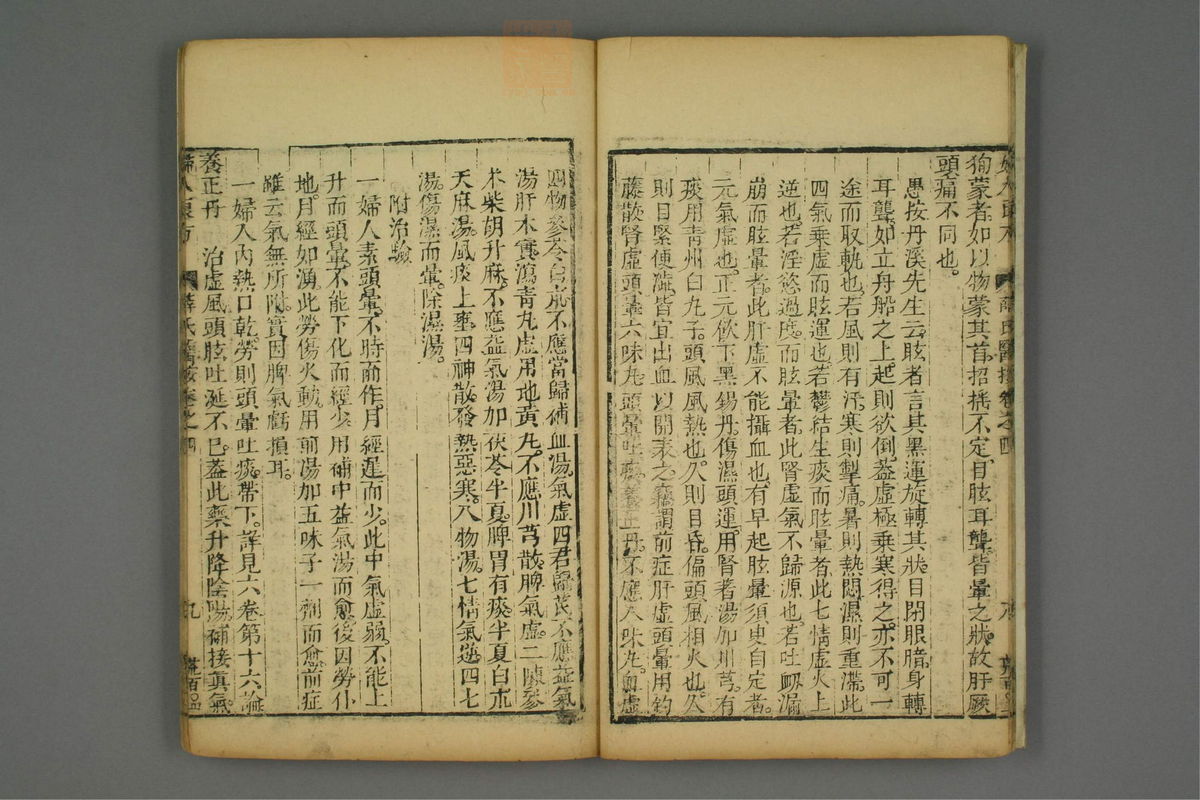 徇蒙者如以物蒙其首招搖不定目眩耳聾皆暈之狀故肝厥
頭痛不同也
愚按丹溪先生云眩者言其黑運旋轉其狀目閉眼暗身轉
耳聾如立舟船之上起則欲倒蓋虛極乘寒得之亦不可一
途而取軌也若風則有汗寒則掣痛暑則熱悶濕則重滯此
四氣乘虛而眩運也若鬱結生痰而眩暈者此七情虛火上
逆也若淫慾過度而眩暈者此腎虛氣不歸源也若吐衄漏
崩而眩暈者此肝虛不能攝血也有早起眩暈須臾自定者
元氣虛也正元飲下黑錫丹傷濕頭運用腎者湯加川芎有
痰用青州白丸子頭風風熱也久則目昏偏頭風相火也久
則目緊便澁皆宜出血以開表之竊謂前症肝虛頭暈用鈎
藤散腎虛頭暈六味丸頭暈吐痰養正丹不應八味丸血虛
四物參苓白朮不應當歸補血湯氣虛四君歸芪不應益氣
湯肝木實瀉青丸虛用地黃丸不應川芎散脾氣虛二陳參
朮柴胡升麻不應益氣湯加茯苓半夏脾胃有痰半夏白朮
天麻湯風痰上壅四神散發熱惡寒八物湯七情氣逆四七
湯傷濕而暈除濕湯
附治驗
一婦人素頭暈不時而作月經遲而少此中氣虛弱不能上
升而頭暈不能下化而經少用補中益氣湯而愈後因勞仆
地月經如湧此勞傷火動用前湯加五味子一劑而愈前症
雖云氣無所附實因脾氣虧損耳
一婦人內熱口乾勞則頭暈吐痰帶下詳見六卷第十六論
養正丹 治虛風頭眩吐涎不已蓋此藥升降陰陽補接眞氣
婦人良方 薛氏醫按卷之四 九